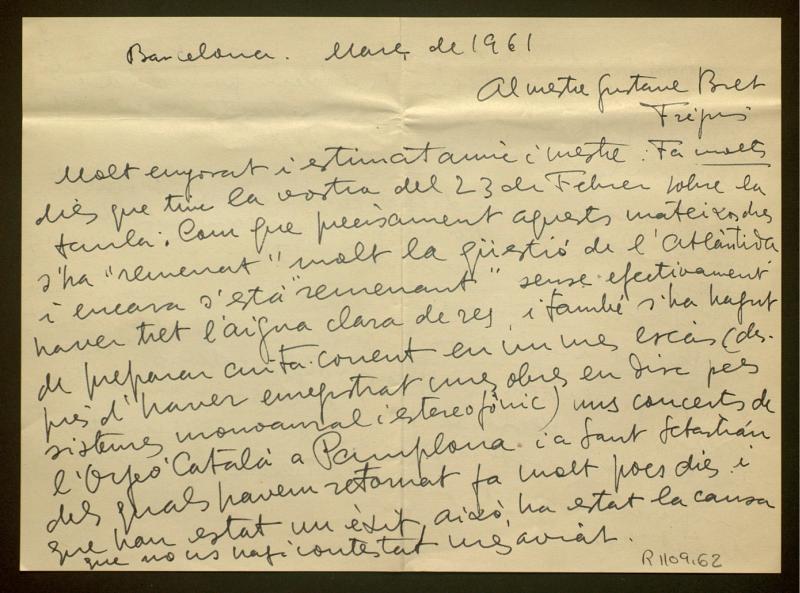 Barcelona. Març de 1961
Al mestre Gustave Bret
Fréjus
Molt enyorat i estimat amic i mestre: Fa molts
dies que tinc la vostra del 23 de Febrer sobre la
taula; Com que precisament aquests mateixos dies
s'ha "remenat" molt la qüestió de l'Atlàntida
i encara s'està "remenant" sense efectivament
haver tret l'aigua clara de res, i també s'ha hagut
de preparar cuita-corrent en un mes escàs (des-
prés d'haver enregistrat unes obres en disc pels
sistemes monoaural i estereofònic) uns concerts de
l'Orfeó Català a Pamplona i a Sant Sebastián
dels quals havem retornat fa molt pocs dies i
que han estat un èxit, això ha estat la causa
que no us hagi contestat més aviat.
R1109.62